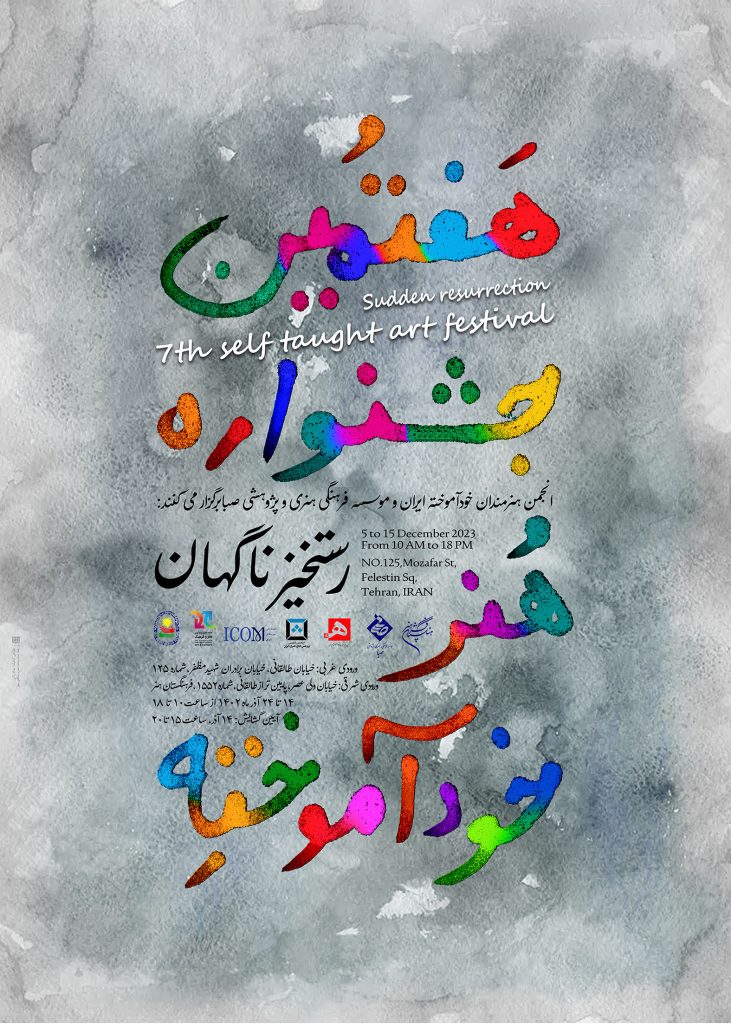 هَفتمُین
Sudden resurrection
7th self taught art festival
جشنواره
انجمن هنرمندان خودآموختهٔ ایران و موسسه فرهنگی هنری و پژوهشی صبا برگزار می کنند:
رستخیز ناگهان
5 to 15 December 2023
From 10 AM to 18 PM
NO.125,Mozafar St,
Felestin Sq,
Tehran, IRAN
هُنر
ICOM
ورودی غربی: خیابان طالقانی، خیابان برادران شهید مظفر، شماره ۱۲۵
ورودی شرقی: خیابان ولی عصر، پایین تر از طالقانی، شماره ۱۵۵۲، فرهنگستان هنر
۱۴ تا ۲۴ آذر ماه ۱۴۰۲ از ساعت ۱۰ تا ۱۸
آیین گشایش: ۱۴ آذر، ساعت ۱۵ تا ۲۰
خودآموختهِ